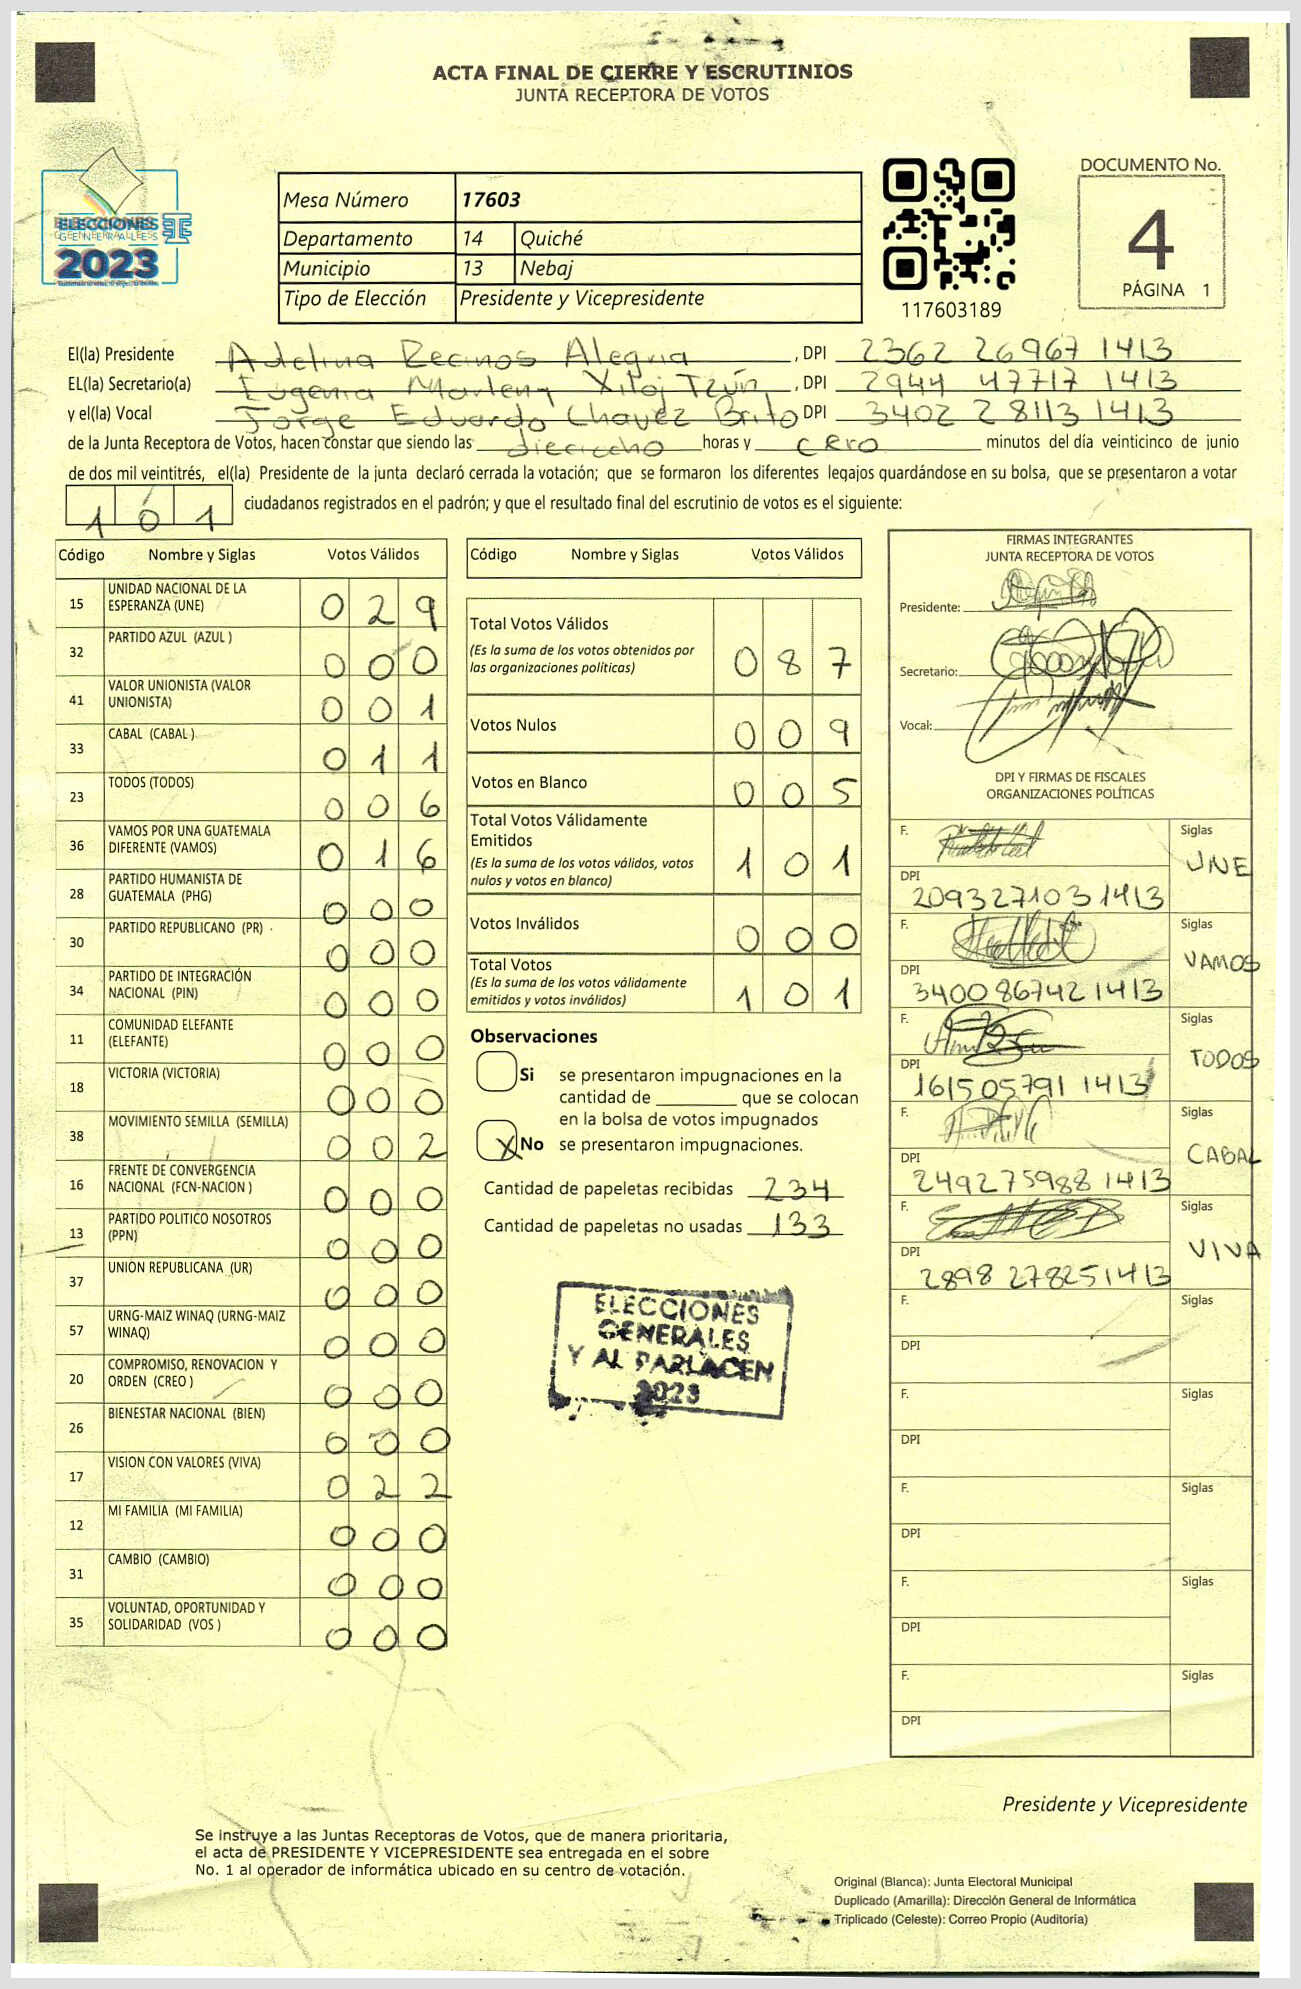 ACTA FINAL DE CIERRE Y ESCRUTINIOS
JUNTA RECEPTORA DE VOTOS
ELECCIONES
GENERALES
2023
Mesa Número 17603
Departamento 14 Quiché
Municipio 13 Nebaj
Tipo de Elección Presidente y Vicepresidente
117603189
DOCUMENTO No.
4
PÁGINA 1
El(la) Presidente Adelina Recinos Alegria, DPI 2362 26967 1413
EL(la) Secretario(a) Eugenia Marleny Xiloj Tzún, DPI 2944 47717 1413
y el(la) Vocal Jorge Eduardo Chavez Brito DPI 3402 28113 1413
de la Junta Receptora de Votos, hacen constar que siendo las dieciocho horas y cero minutos del día veinticinco de junio
de dos mil veintitrés, el(la) Presidente de la junta declaró cerrada la votación; que se formaron los diferentes legajos quardándose en su bolsa, que se presentaron a votar
101 ciudadanos registrados en el padrón; y que el resultado final del escrutinio de votos es el siguiente:
Código Nombre y Siglas Votos Válidos
15 UNIDAD NACIONAL DE LA ESPERANZA (UNE) 029
32 PARTIDO AZUL (AZUL ) 000
41 VALOR UNIONISTA (VALOR UNIONISTA) 001
33 CABAL (CABAL ) 011
23 TODOS (TODOS) 006
36 VAMOS POR UNA GUATEMALA DIFERENTE (VAMOS) 016
28 PARTIDO HUMANISTA DE GUATEMALA (PHG) 000
30 PARTIDO REPUBLICANO (PR) 000
34 PARTIDO DE INTEGRACIÓN NACIONAL (PIN) 000
11 COMUNIDAD ELEFANTE (ELEFANTE) 000
18 VICTORIA (VICTORIA) 000
38 MOVIMIENTO SEMILLA (SEMILLA) 002
16 FRENTE DE CONVERGENCIA NACIONAL (FCN-NACION ) 000
13 PARTIDO POLITICO NOSOTROS (PPN) 000
37 UNIÓN REPUBLICANA (UR) 000
57 URNG-MAIZ WINAQ (URNG-MAIZ WINAQ) 000
20 COMPROMISO, RENOVACION Y ORDEN (CREO ) 000
26 BIENESTAR NACIONAL (BIEN) 000
17 VISION CON VALORES (VIVA) 022
12 MI FAMILIA (MI FAMILIA) 000
31 CAMBIO (CAMBIO) 000
35 VOLUNTAD, OPORTUNIDAD Y SOLIDARIDAD (VOS ) 000
Código Nombre y Siglas Votos Válidos
Total Votos Válidos
(Es la suma de los votos obtenidos por
las organizaciones políticas) 087
Votos Nulos 009
Votos en Blanco 005
Total Votos Válidamente
Emitidos
(Es la suma de los votos válidos, votos
nulos y votos en blanco) 101
Votos Inválidos 000
Total Votos
(Es la suma de los votos válidamente
emitidos y votos inválidos) 101
Observaciones
Si se presentaron impugnaciones en la
cantidad de ________ que se colocan
en la bolsa de votos impugnados
X No se presentaron impugnaciones.
Cantidad de papeletas recibidas 234
Cantidad de papeletas no usadas 133
ELECCIONES
GENERALES
Y AL PARLACEN
2023
FIRMAS INTEGRANTES
JUNTA RECEPTORA DE VOTOS
Presidente:
Secretario:
Vocal:
DPI Y FIRMAS DE FISCALES
ORGANIZACIONES POLÍTICAS
F. Siglas UNE
DPI 209327103 1413
F. Siglas VAMOS
DPI 3400 86742 1413
F. Siglas TODOS
DPI 161505791 1413
F. Siglas CABAL
DPI 249275988 1413
F. Siglas VIVA
DPI 2898 27825 1413
F. Siglas
DPI
F. Siglas
DPI
F. Siglas
DPI
F. Siglas
DPI
F. Siglas
DPI
Presidente y Vicepresidente
Se instruye a las Juntas Receptoras de Votos, que de manera prioritaria,
el acta de PRESIDENTE Y VICEPRESIDENTE sea entregada en el sobre
No. 1 al operador de informática ubicado en su centro de votación.
Original (Blanca): Junta Electoral Municipal
Duplicado (Amarilla): Dirección General de Informática
Triplicado (Celeste): Correo Propio (Auditoría)